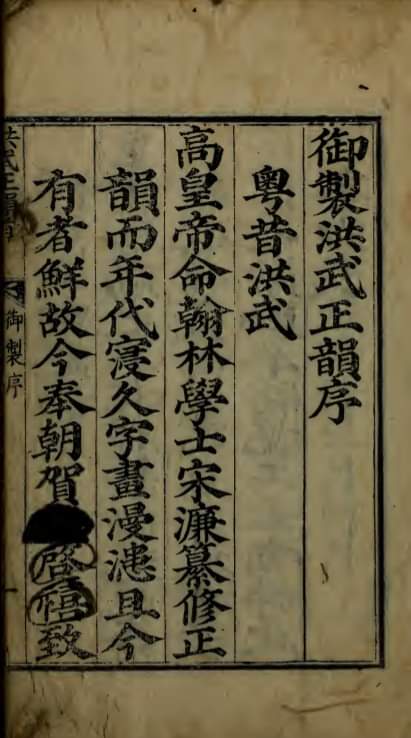 御製洪武正韻序
粤昔洪武
高皇帝命翰林學士宋濂纂修正
韻而年代寖久字畫漫漶且今
有者鮮故今奉朝賀啓禧致
御製序